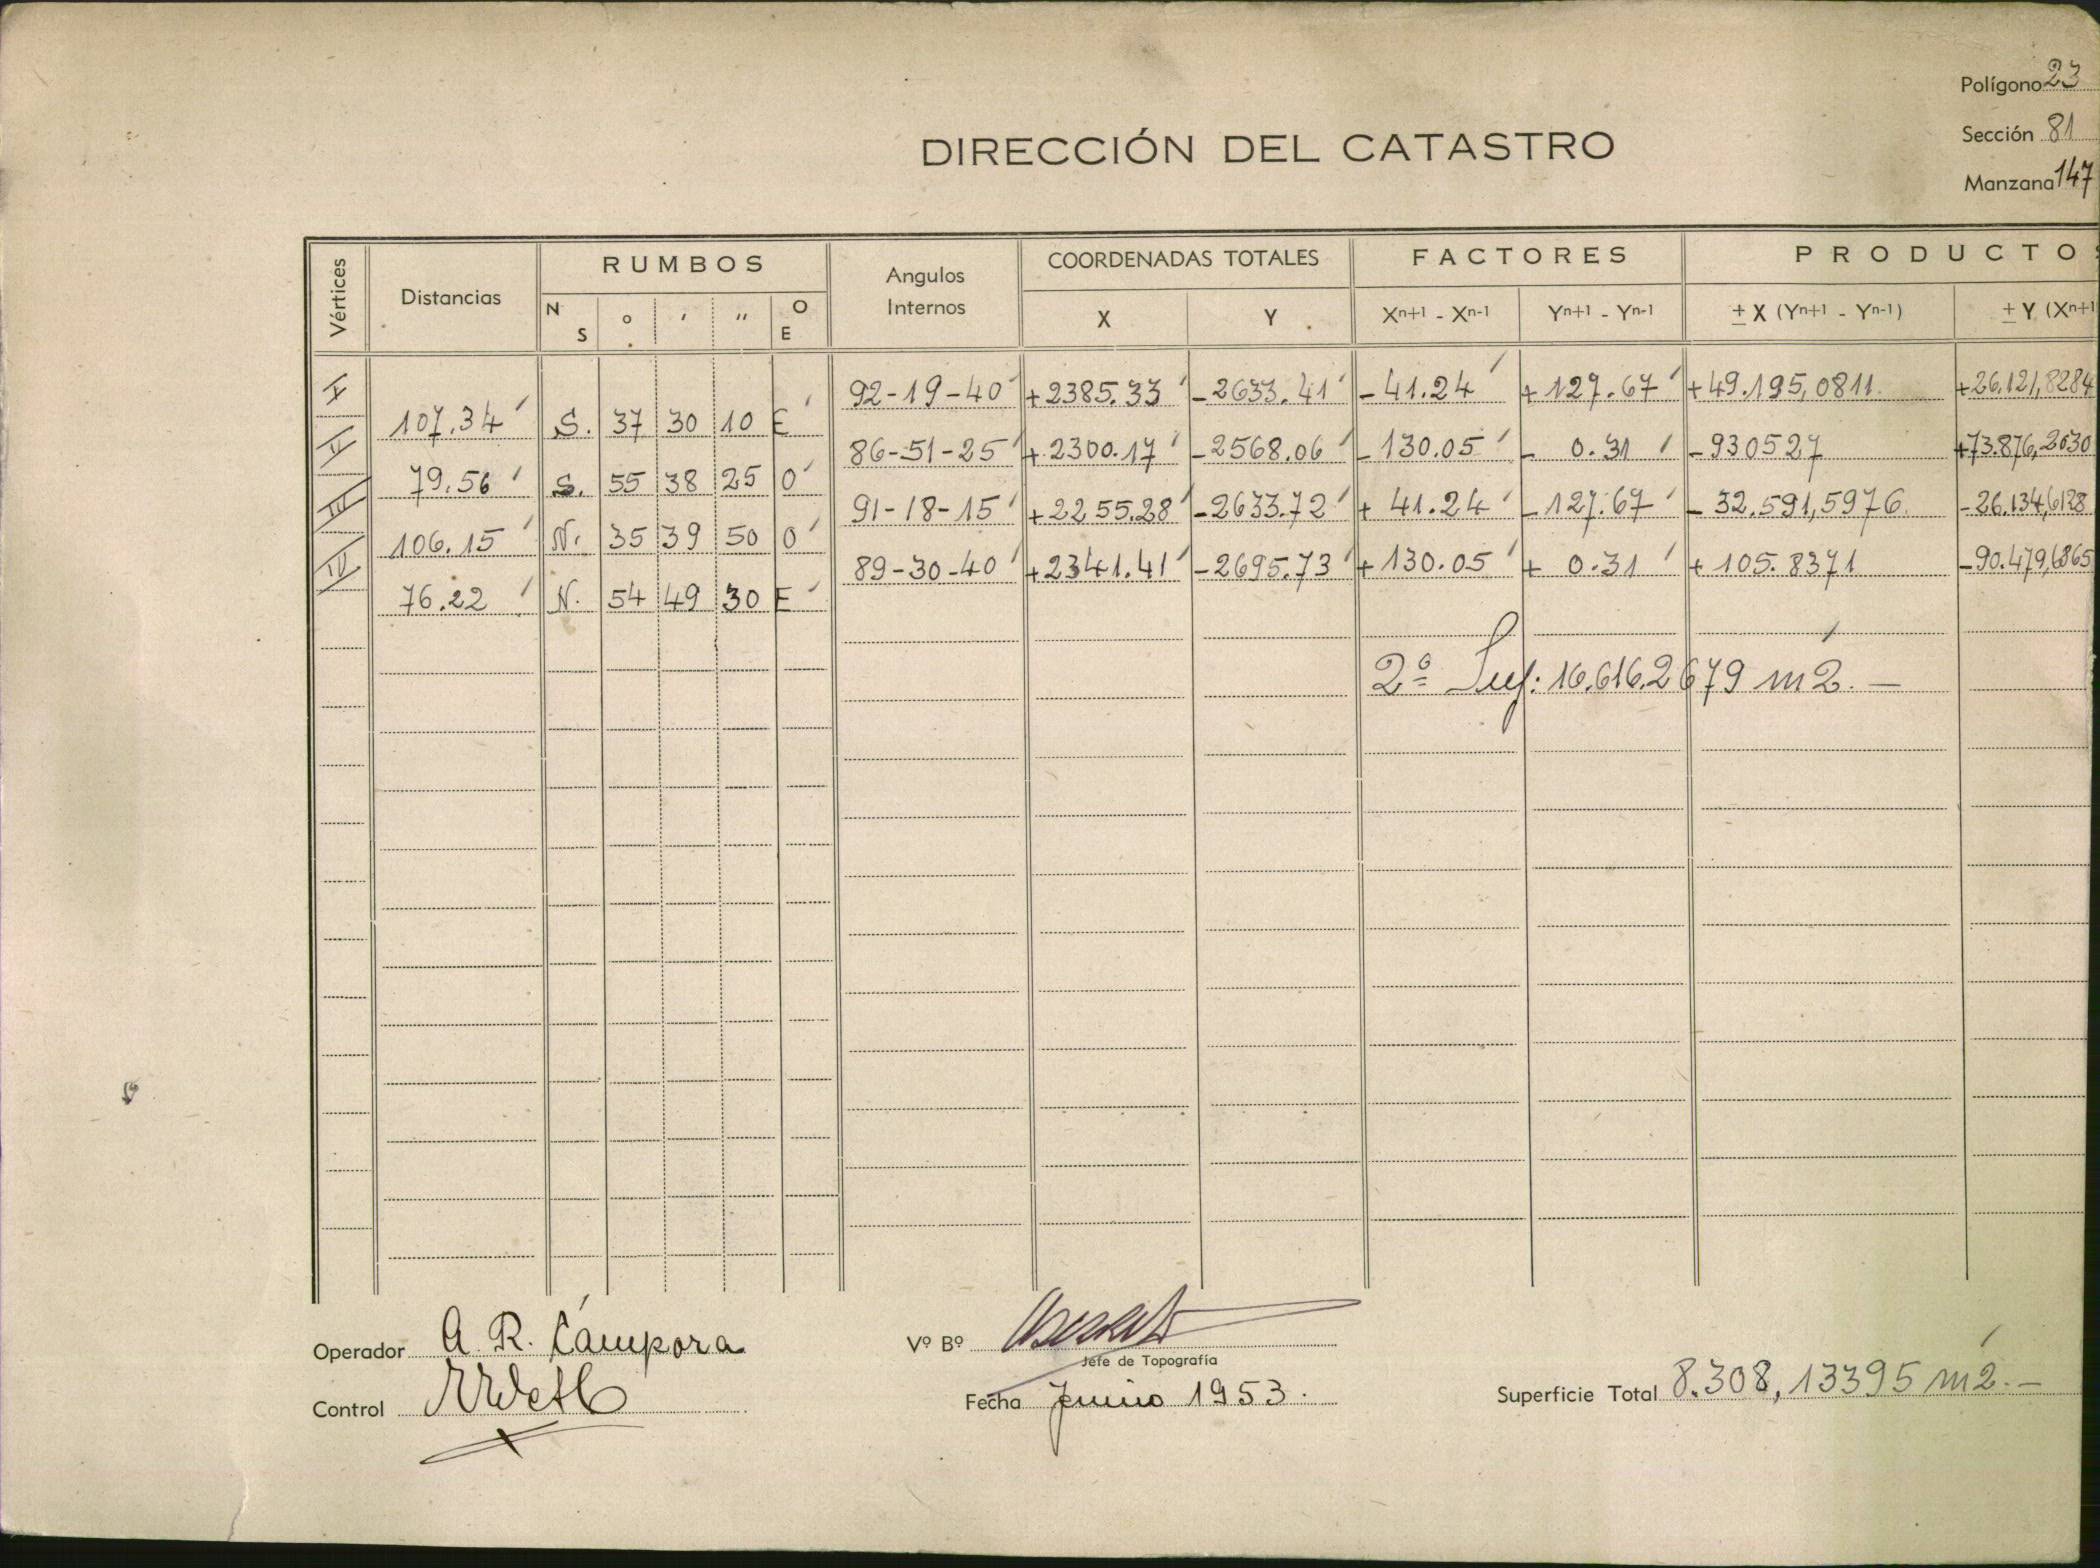 Polígono 23
Sección 81
Manzana 147
DIRECCIÓN DEL CATASTRO
Vértices Distancias RUMBOS Angulos Internos COORDENADAS TOTALES FACTORES PRODUCTOS
N S ° ' " O E X Y Xn+1 - Xn-1 Yn+1 - Yn-1 ± X (Yn+1 - Yn-1) ± Y (Xn+1
I 92-19-40 +2385.33 -2633.41 -41.24 +127.67 +49.195,0811 +26.121,8284
107.34 S. 37 30 10 E
II 86-51-25 +2300.17 -2568.06 -130.05 - 0.31 -930527 +73.876,2030
79.56 S. 55 38 25 O
III 91-18-15 +2255.28 -2633.72 + 41.24 -127.67 - 32.591,5976 -26.134,6128
106.15 N. 35 39 50 O
IV 89-30-40 +2341.41 -2695.73 + 130.05 + 0.31 + 105.8371 -90.479,6865
76.22 N. 54 49 30 E
2ª Suf: 16.616,2679 m2. —
Operador A. R. Cámpora
Vº Bº
Jefe de Topografía
Control
Fecha Junio 1953.
Superficie Total 8.308,13395 m2. —